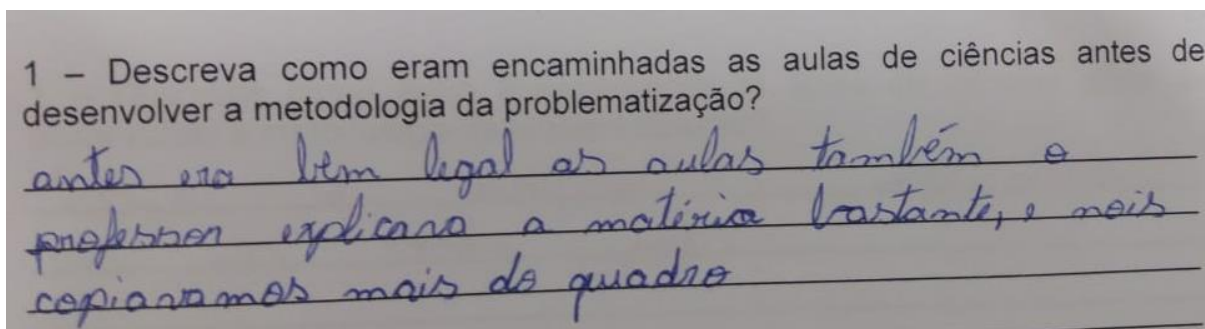 1 – Descreva como eram encaminhadas as aulas de ciências antes de
desenvolver a metodologia da problematização?
antes era bem legal as aulas também o
professor explicava a matéria bastante, e nois
copiavamos mais do quadro